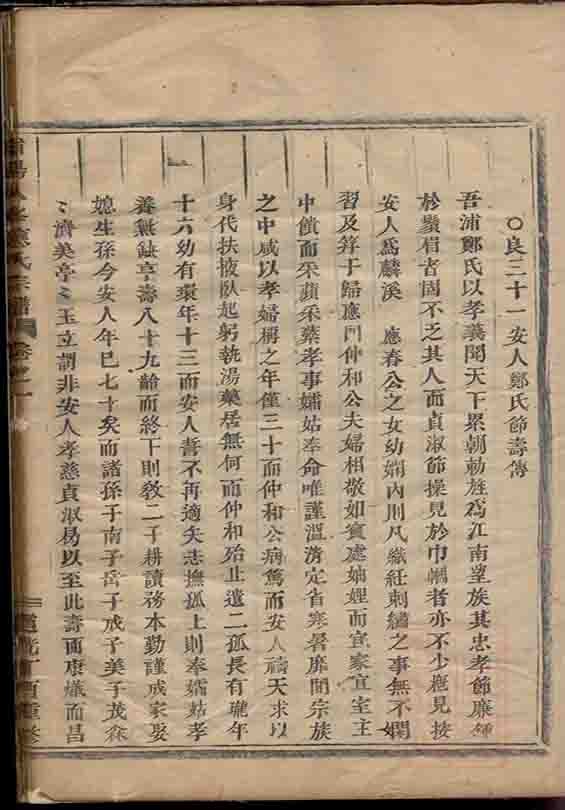 ○良三十一安人鄭氏節壽傳
吾浦鄭氏以孝義聞天下累朝勅旌為江南望族其忠孝節廉錚
於鬚眉者固不乏其人而貞淑節操見於巾幗者亦不少概見按
安人為麟溪 應春公之女幼嫻內則凡織紅刺繡之事無不嫻
習及笄于歸應門仲和公夫婦相敬如賓處妯娌而宜家宜室主
中饋而采蘋采蘩孝事孀姑奉命唯謹溫凊定省寒暑靡間宗族
之中咸以孝婦稱之年僅三十而仲和公病篤而安人禱天求以
身代扶掖臥起躬執湯藥居無何而仲和殆止遺二孤長有瓏年
十六幼有環年十三而安人誓不再適矢志撫孤上則奉孀姑孝
養無蝕享壽八十九齡而終下則教二子耕讀務本勤謹成家娶
媳生孫今安人年已七十矣而諸孫子南子岳子成子美子茂森
〻濟美亭〻玉立謂非安人孝慈貞淑易以至此壽而康熾而昌
氏宗譜 卷之一
道光丁酉重修